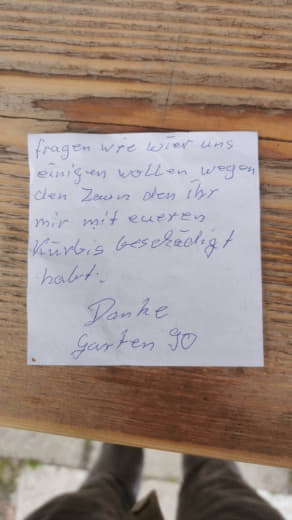 fragen wie wier uns
einigen wollen, wegen
den Zaun den ihr
mir mit eueren
Kürbis beschädigt
habt.
Danke
Garten 90